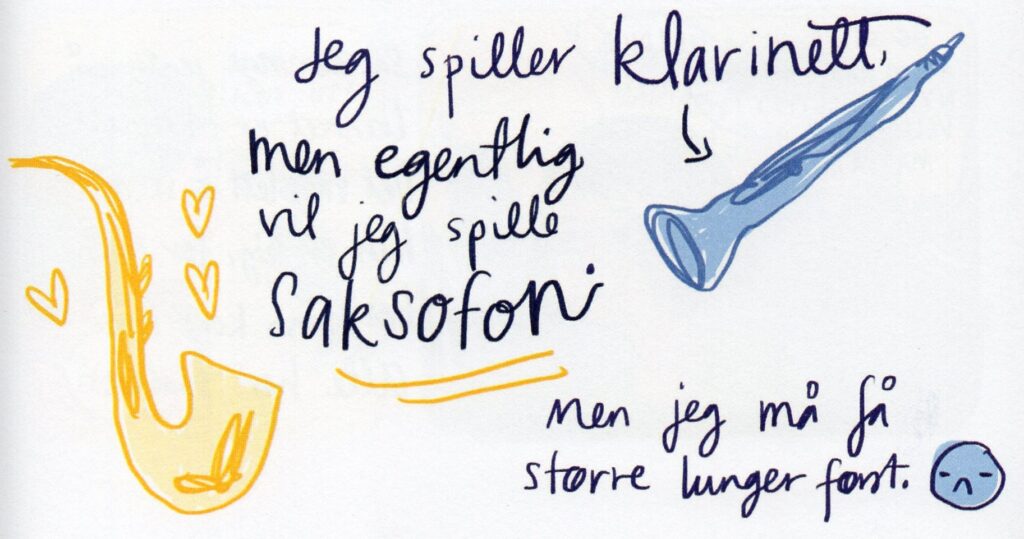 Jeg spiller klarinett,
men egentlig
vil jeg spille
Saksofon.
Men jeg må få
større lunger først.